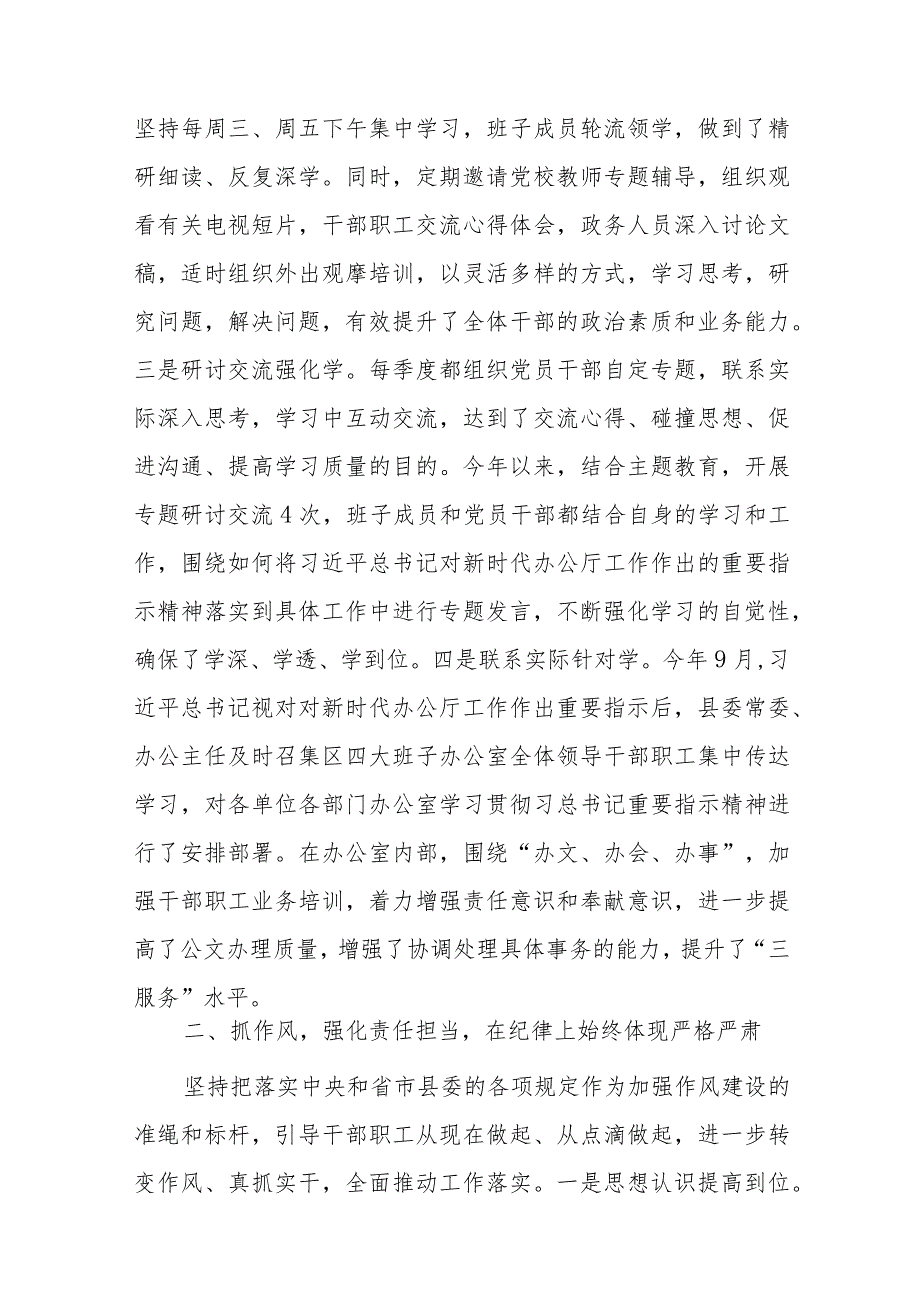 坚持每周三、周五下午集中学习，班子成员轮流领学，做到了精
研细读、反复深学。同时，定期邀请党校教师专题辅导，组织观
看有关电视短片，干部职工交流心得体会，政务人员深入讨论文
稿，适时组织外出观摩培训，以灵活多样的方式，学习思考，研
究问题，解决问题，有效提升了全体干部的政治素质和业务能力。
三是研讨交流强化学。每季度都组织党员干部自定专题，联系实
际深入思考，学习中互动交流，达到了交流心得、碰撞思想、促
进沟通、提高学习质量的目的。今年以来，结合主题教育，开展
专题研讨交流4次，班子成员和党员干部都结合自身的学习和工
作，围绕如何将习近平总书记对新时代办公厅工作作出的重要指
示精神落实到具体工作中进行专题发言，不断强化学习的自觉性，
确保了学深、学透、学到位。四是联系实际针对学。今年9月,习
近平总书记视对对新时代办公厅工作作出重要指示后，县委常委、
办公主任及时召集区四大班子办公室全体领导干部职工集中传达
学习，对各单位各部门办公室学习贯彻习总书记重要指示精神进
行了安排部署。在办公室内部，围绕“办文、办会、办事”，加
强干部职工业务培训，着力增强责任意识和奉献意识，进一步提
高了公文办理质量，增强了协调处理具体事务的能力，提升了“三
服务”水平。
二、抓作风，强化责任担当，在纪律上始终体现严格严肃
坚持把落实中央和省市县委的各项规定作为加强作风建设的
准绳和标杆，引导干部职工从现在做起、从点滴做起，进一步转
变作风、真抓实干，全面推动工作落实。一是思想认识提高到位。